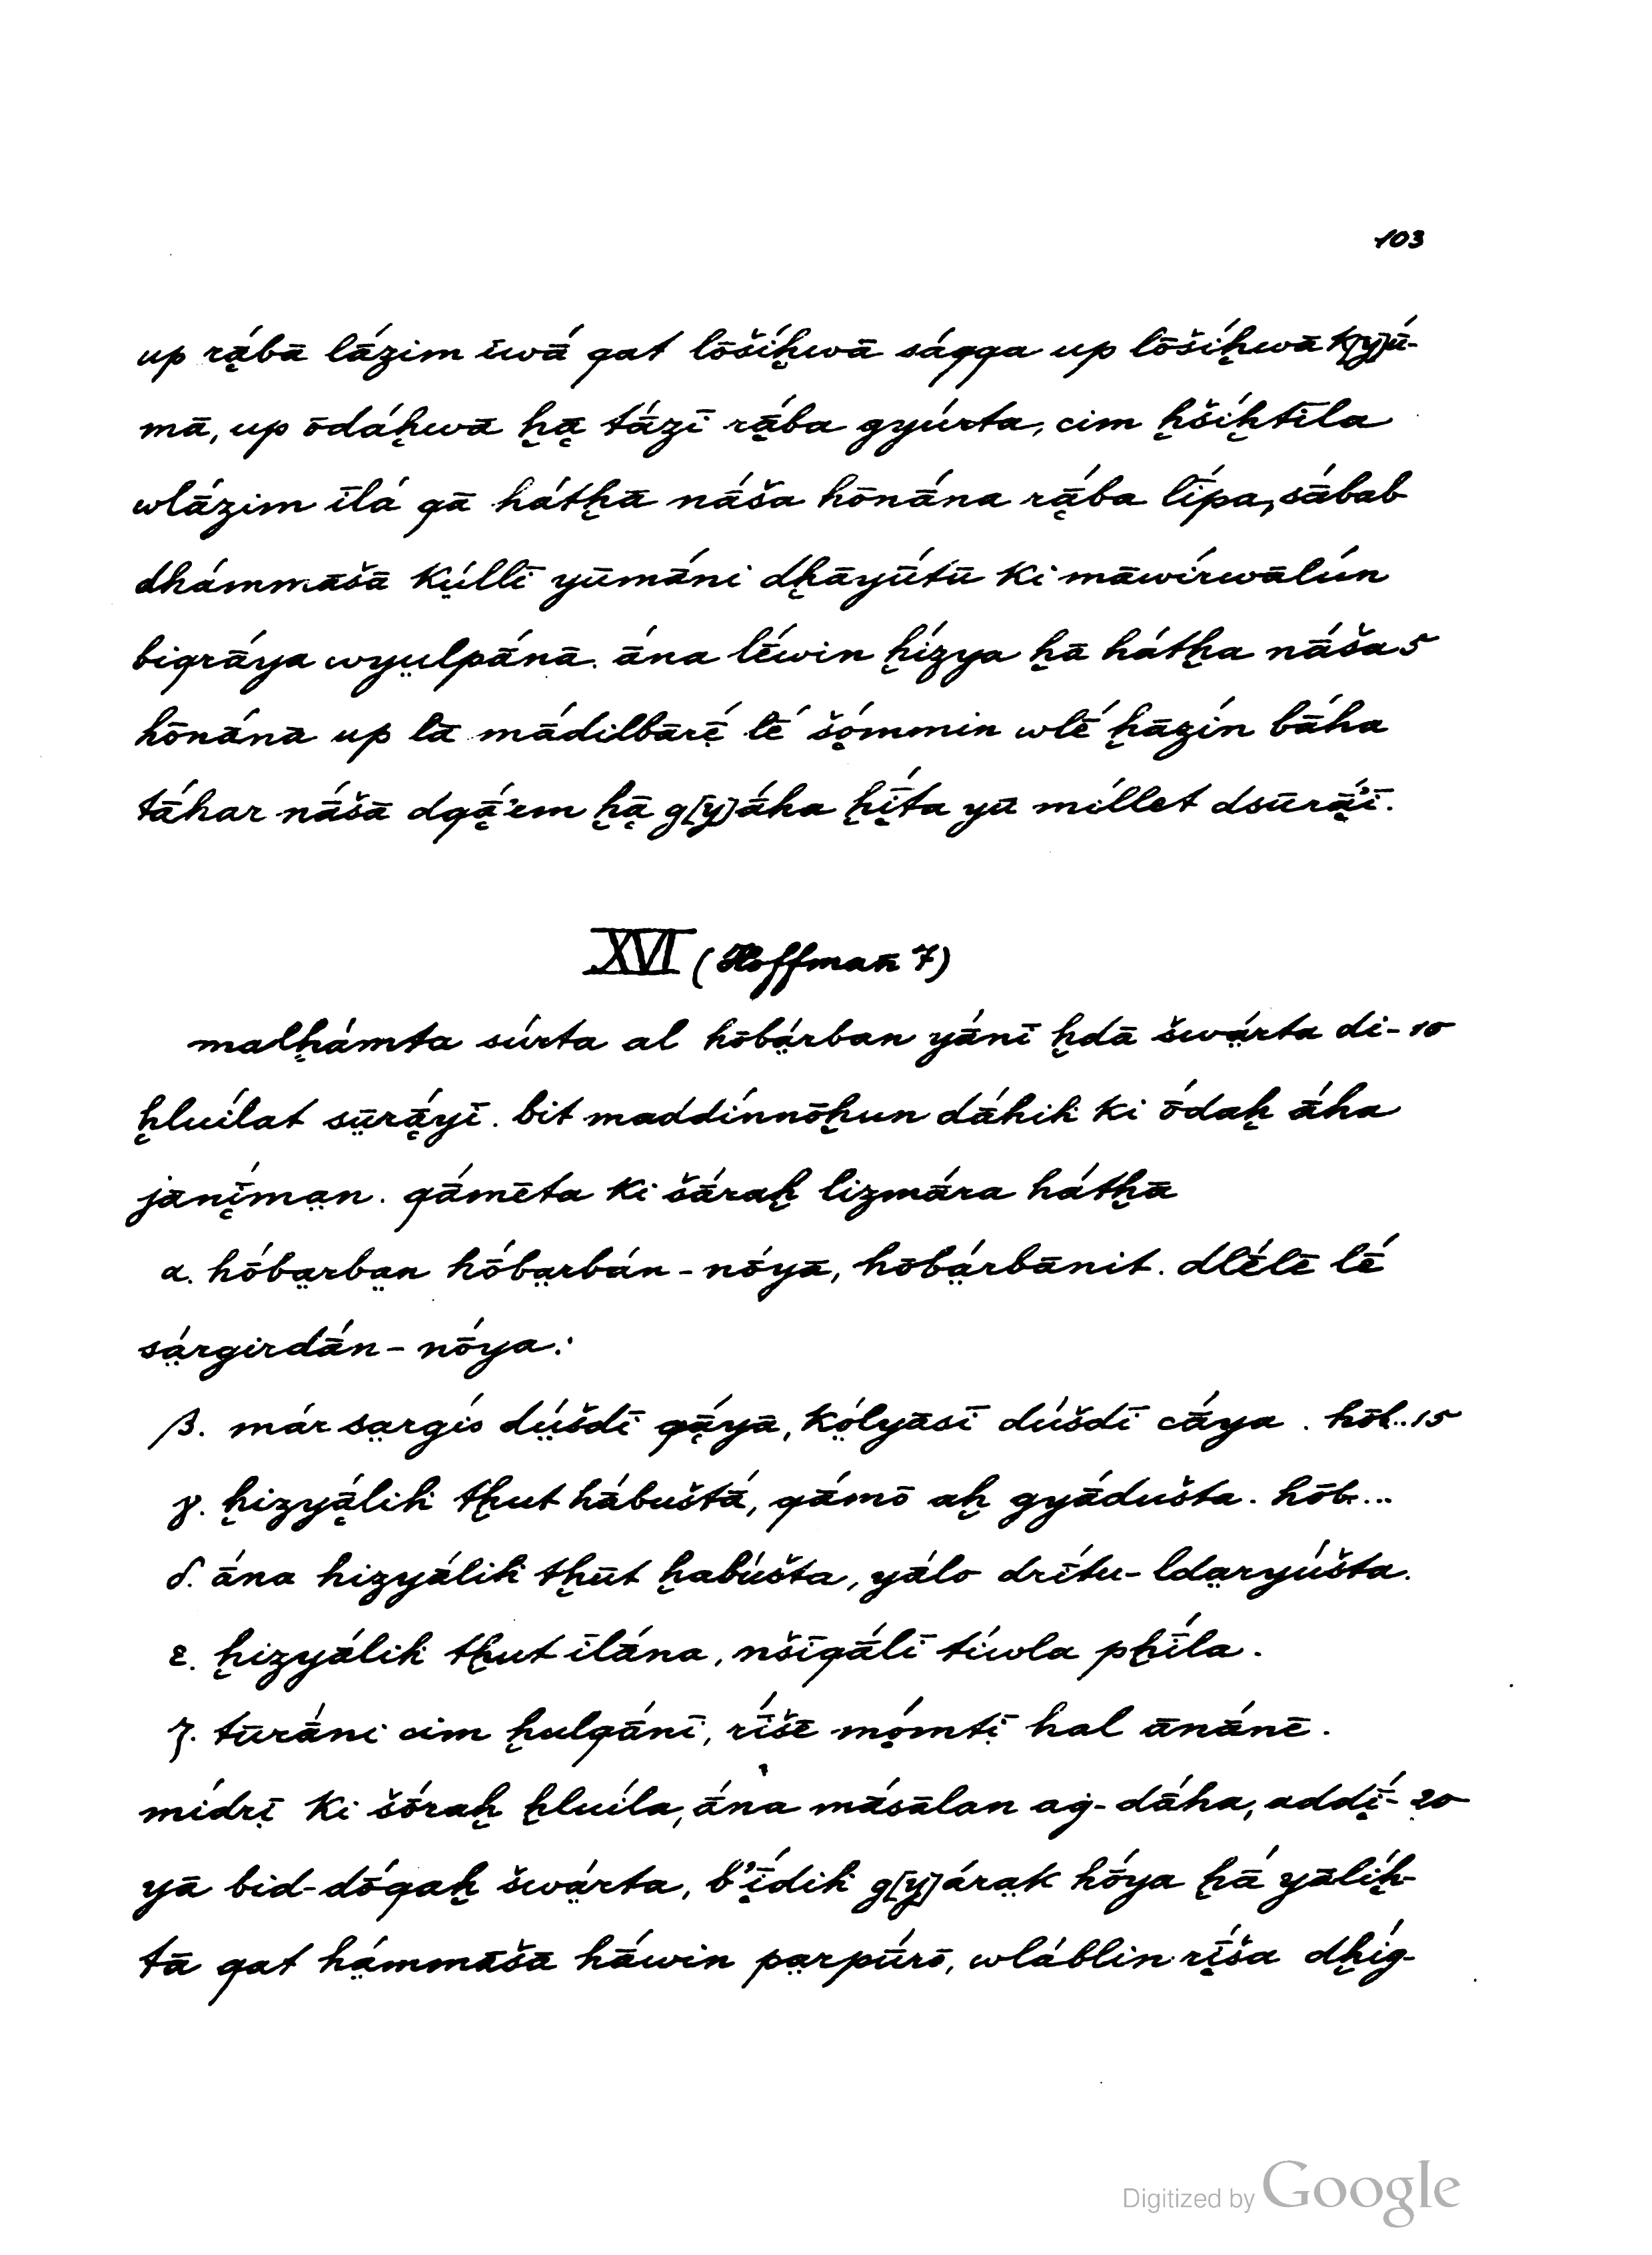 103
up rą́bā lā́zim īwā́ qat lōšíḫwā ságga up lōšíḫwā k[y]ū́-
mā, up ōdáḫwā ḫą̄ tā́zī rą́ba gyúrta, cim ḫšíḫtīla
wlā́zim īlá qā hátḫā nā́ša hōnā́na rą́ba lī́pa, sābab
dhámmāšā kṳ́llī yūmā́ni dḫāyū́tū ki māwírwālún
biqrā́ya wyṳlpā́nā. ā́na lḗwin ḫízya ḫā hátḫa nā́ša 5
hōnā́nā up lā mā́dilbārẹ̄́ lḗ šọ́mmin wlḗ ḫāzín bā́ha
tā́har nā́šā dqą̄́'im ḫą̄ g[y]ā́ha ḫį̄́ta yū míllet dsūrą̄́'ī.
XVI (Hoffman 7)
malḫámta súrta al hōbá̤rban yā́nī ḫdā šwá̤rta di- 10
ḫluílat sṳ̄rą̄́yī. bit maddínnōḫun dā́hik ki ṓdaḫ ā́ha
jānį̄́ma̤n. qā́mēta ki šā́raḫ lizmā́ra hátḫā
α. hṓba̤rba̤n hṓba̤rbán-nṓyā, hōbá̤rbānit. dlḗlē lḗ
sá̤rgirdā́n-nṓya:
β. már sa̤rgís dṳ́šdī qą̄́yā, kó̤lyāsī dúšdī cā́ya. hōb.. 15
γ. ḫizyą̄́lik tḫut hábuštā́, qā́mō aḫ gyā́dušta. hōb...
δ. ā́na hizyā́lik tḫūt ḫabúšta, yálo drī́tu-lda̤ryúšta.
ε. ḫizyálik tḫut īlā́na, nšīqā́lī tíwla pḫī́la.
ζ. tūrā́ni cim ḫulqā́nī, rī́šē mọ́mtị̄ hal ānā́nē.
mídrị̄ ki šṓraḫ ḫluíla, ā́na másālan aġ-dā́ha, addį̄́- 20
yā bid-dṓqaḫ šwá̤rta, b'į̄́dik g[y]ára̤k hṓya ḫā́ yālíḫ-
tā qat há̤mmāšā hā́win pa̤rpū́rō, wláblin rį̄́ša dḫíg-
Digitized by Google